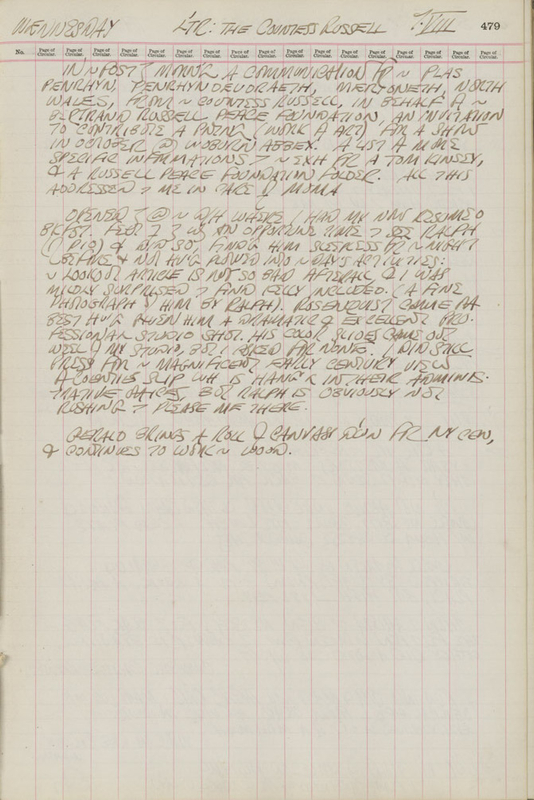 WENNESDAY LTR: THE COUNTESS RUSSELL 7: VIII 479
No. Page of Circular. Page of Circular. Page of Circular. Page of Circular. Page of Circular. Page of Circular. Page of Circular. Page of Circular. Page of Circular. Page of Circular. Page of Circular. Page of Circular. Page of Circular.
IN ~ POST MORN'G, A COMMUNICATION FR ~ PLAS
PENRHYN, PENRHYNDEUDRAETH, MERIONETH, NORTH
WALES, FROM ~ COUNTESS RUSSELL, IN BEHALF ~
BERTRAND RUSSELL PEACE FOUNDATION, AN INVITATION
TO CONTRIBUTE A PNTNG (WORK ART) FR A SHOW
IN OCTOBER @ WOBURN ABBEY. A MORE
SPECIFIC INFORMATIONS ~ EXH FR A TOM KINSEY,
& A RUSSELL PEACE FOUNDATION FOLDER. ALL THIS
ADDRESSED ME IN CARE MOMA
OPENED @ ~ WHERE I HAD MY RESUMED
BKFST. FELT AN OPPORTUNE TIME SEE RALPH
& DID SO, FINDG HIM ~ NIGHT
BEFORE & NOT INTO ~ DAYS ACTIVITIES:
~ LOOKOUT ARTICLE IS NOT SO BAD AFTERALL & I WAS
MILDLY SURPRISED FIND INCLUDED. (A FINE
PHOTOGRAPH HIM BY RALPH). ROSENQUIST COME
BEST GIVEN HIM A DRAMATIC & EXCELLENT PRO-
FESSIONAL STUDIO SHOT. HIS COLOR SLIDES CAME OUT
WELL MY STUDIO, BUT I ASKED FR NONE. I DID STILL
PRESS FR ~ MAGNIFICENT EARLY CENTURY VIEW
COENTIES SLIP WH IS HANG'G IN THEIR ADMINIS-
TRATIVE OFFICES, BUT RALPH IS OBVIOUSLY NOT
RUSHING PLEASE ME THERE.
GERALD BRINGS A ROLL CANVAS DOWN FR MY
& CONTINUES TO WORK ~ WOOD.